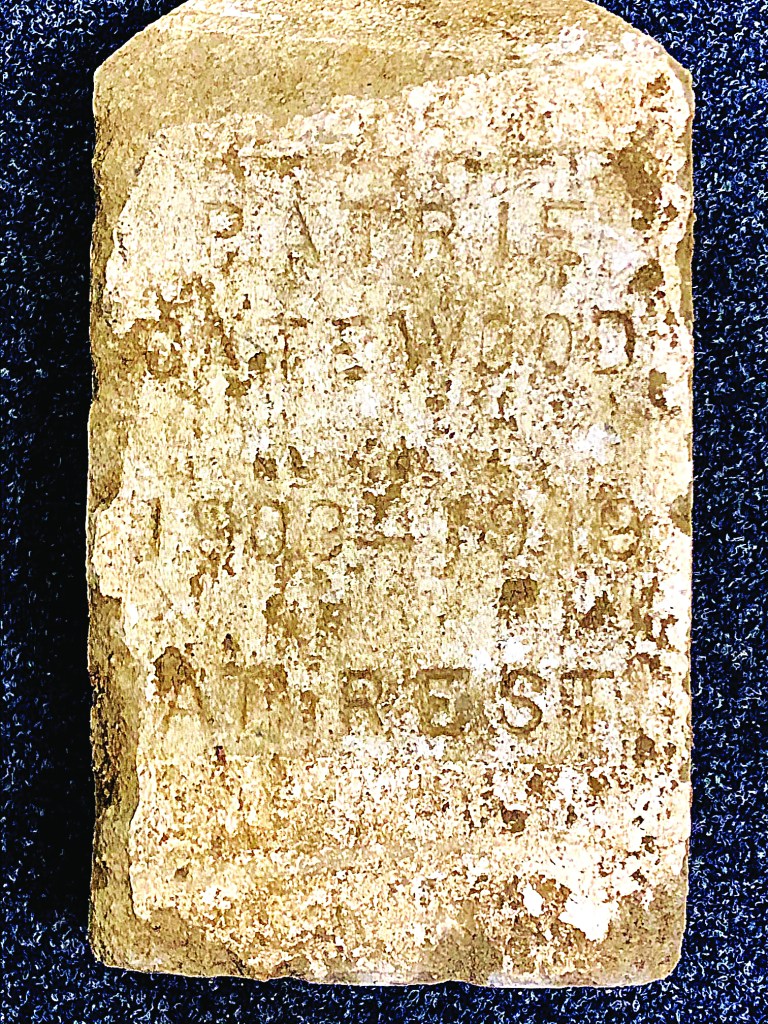 PATRIE
GATEWOOD
1903-1919
AT REST